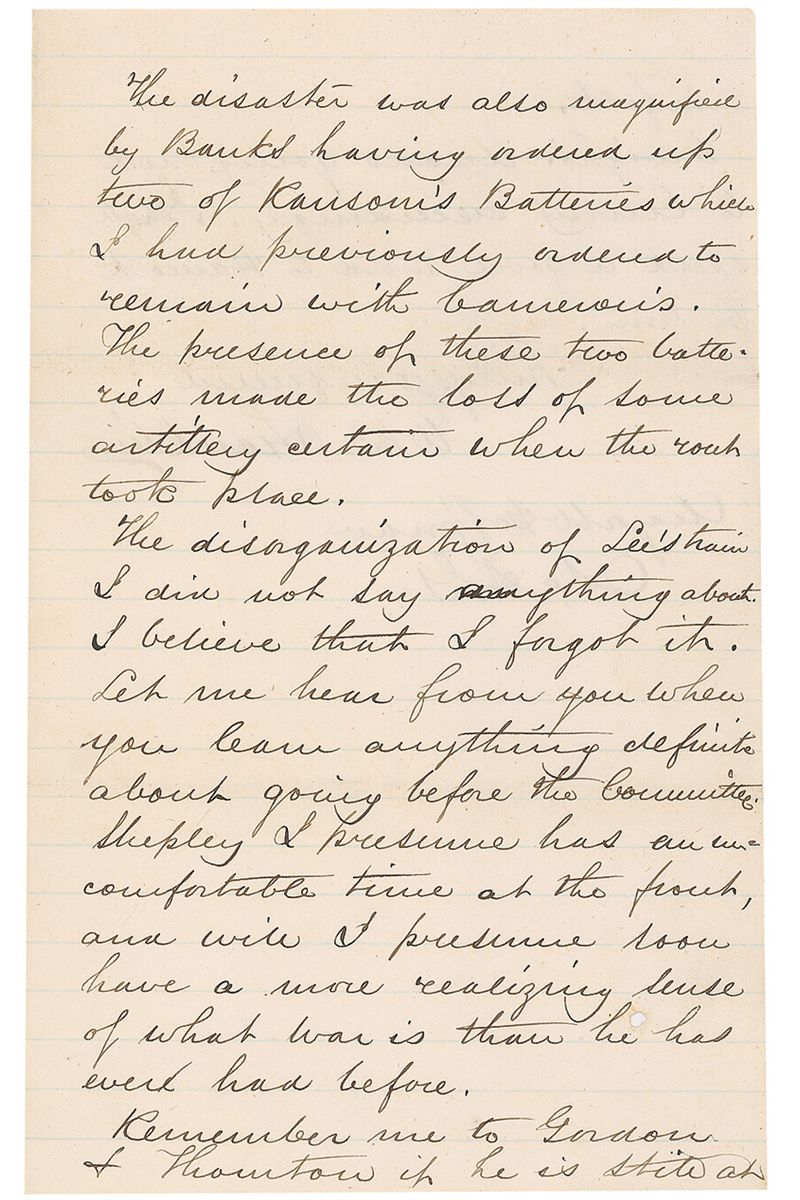 The disaster was also magnified
by Banks having ordered up
two of Ransom's Batteries which
I had previously ordered to
remain with Cameron's.
The presence of these two batte-
ries made the loss of some
artillery certain when the rout
took place.
The disorganization of Lee's train
I did not say anything about.
I believe that I forgot it.
Let me hear from you when
you learn anything definite
about going before the Committee.
Shepley I presume has an un=
comfortable time at the front,
and will I presume soon
have a more realizing sense
of what War is than he has
ever had before.
Remember me to Gordon
& Thornton if he is still at